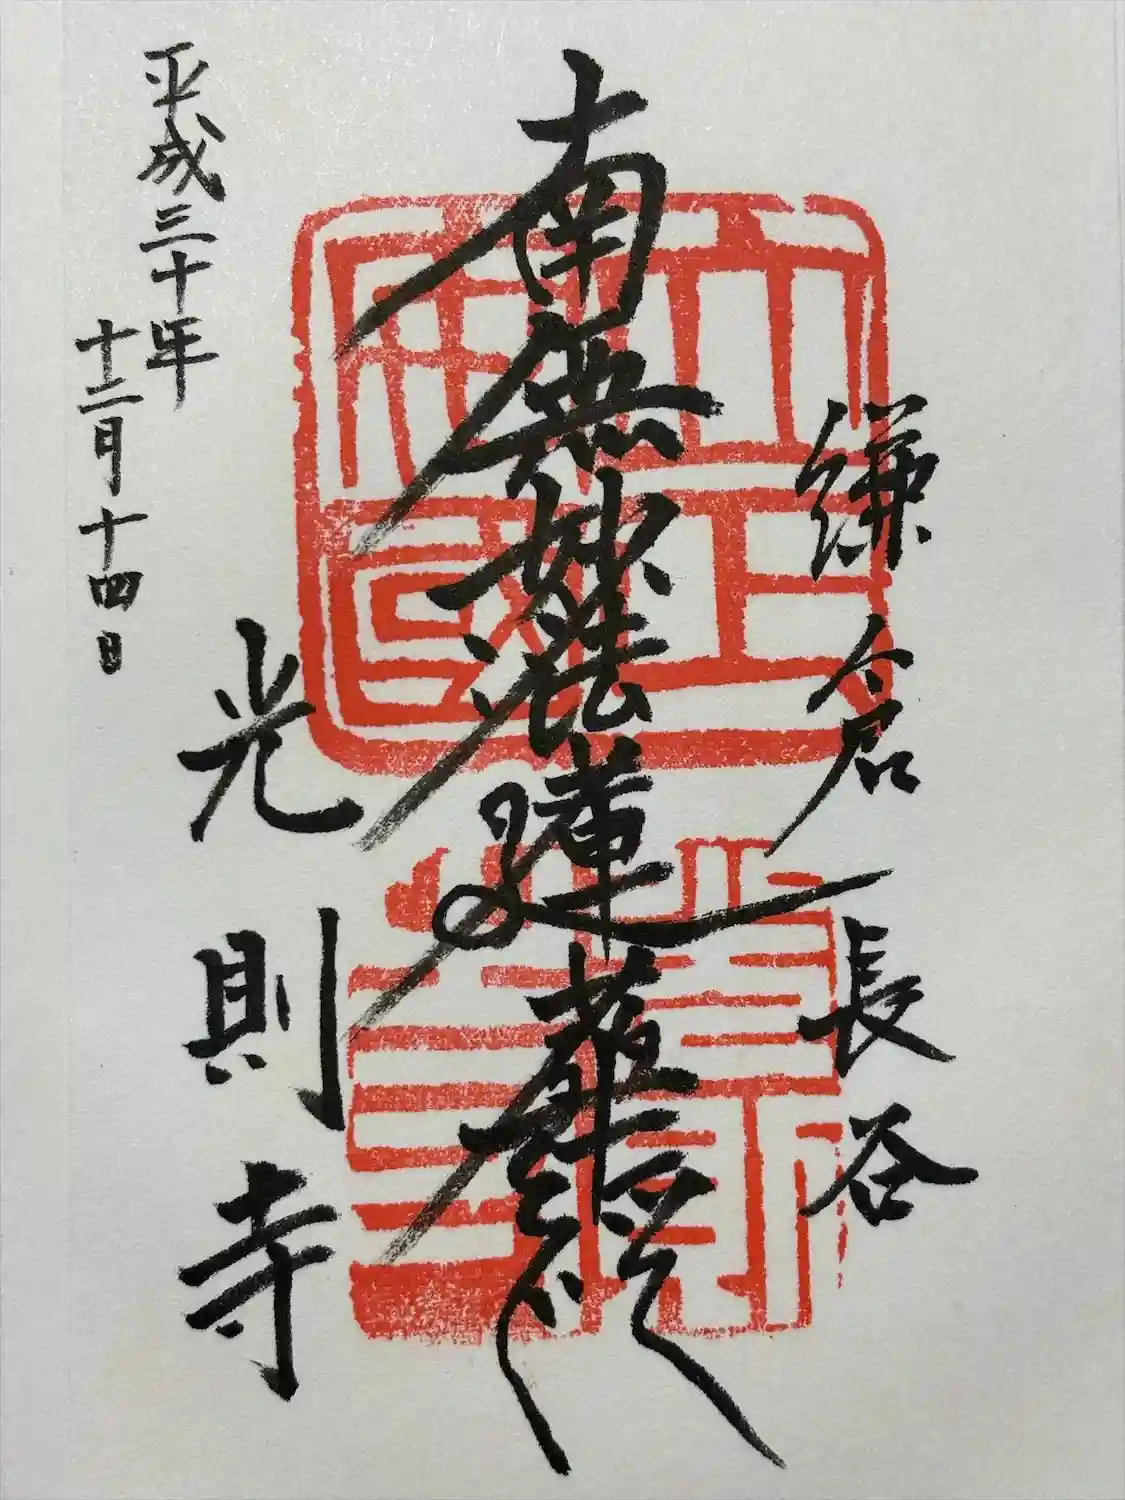 鎌倉長谷
南無妙法蓮華経
光則寺
平成三十年
十二月十四日
立正安国